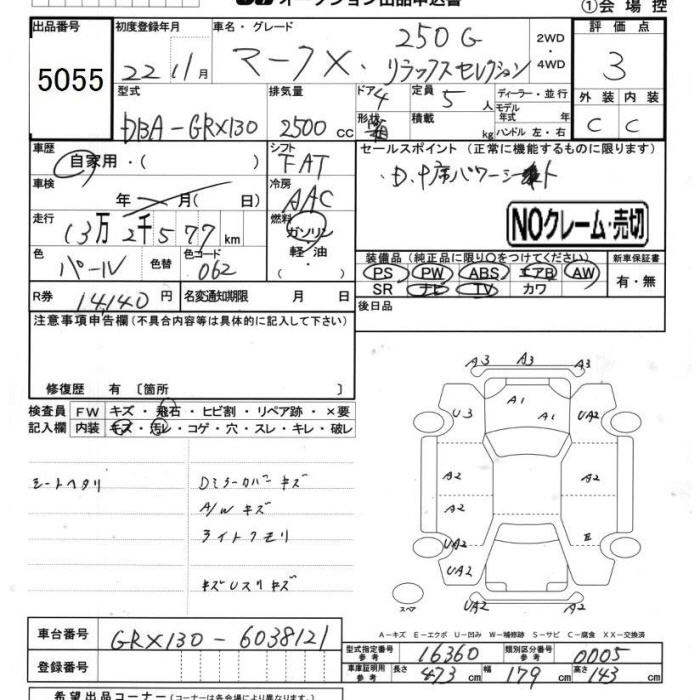 オークション出品申込書
①会場控
出品番号
5055
初度登録年月
22 11月
車名・グレード
マークX. 250G リラックスセレクション
2WD
・4WD
評価点
3
型式
DBA-GRX130
排気量
2500cc
ドア 4
形状
定員 5人
積載 kg
ディーラー・並行
モデル年式 年
ハンドル 左・右
外装 内装
C C
車歴
自家用・( )
シフト
FAT
セールスポイント (正常に機能するものに限ります)
・D.中席パワーシート
車検
年 月( 日)
冷房
AAC
NOクレーム・売切
走行
13万2千577km
燃料
ガソリン
軽油
( )
色
パール
色替
色コード
062
装備品 (純正品に限り○をつけてください)
PS PW ABS エアB AW
SR ナビ TV カワ
新車保証書
有・無
R券 14140円
名変通知期限 月 日
後日品
注意事項申告欄 (不具合内容等は具体的に記入して下さい)
修復歴 有 〔箇所 〕
検査員記入欄
FW キズ・飛石・ヒビ割・リペア跡・×要
内装 キズ・汚レ・コゲ・穴・スレ・キレ・破レ
シートヘタリ
Dミラーカバーキズ
A/Wキズ
ライトクモリ
キズUスリキズ
A3 A3 A3
U3 A1 A1 UA2
A2 A2
A2
UA2 E
UA2
UA2 A2
スペア
A-キズ E-エクボ U-凹み W-補修跡 S-サビ C-腐食 XX-交換済
車台番号
GRX130-6038121
登録番号
型式指定番号 参考
16360
類別区分番号 参考
0005
車庫証明用 参考
長さ 473cm 幅 179cm 高さ 143cm
希望出品コーナー (コーナーは各会場により異なります。)